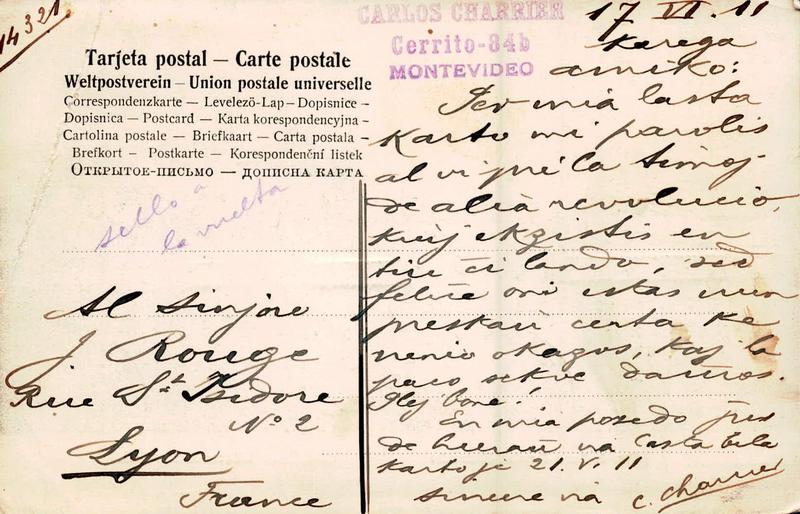 14321
CARLOS CHARRIER
Cerrito-84b
MONTEVIDEO
17 VI. 11
Tarjeta postal — Carte postale
Weltpostverein – Union postale universelle
Correspondenzkarte – Levelezö-Lap – Dopisnice –
Dopisnica – Postcard – Karta korespondencyjna –
Cartolina postale – Briefkaart – Carta postala –
Brefkort – Postkarte – Korespondenční listek
Открытое-письмо — дописна карта
sello a
la vuelta
Al Sinjoro
J Rouge
Rue St. Isidore
No 2
Lyon
France
Karega
amiko:
Per mia lasta
Karto mi parolis
al vi pri la timoj
de alia revolucio,
kiuj ekzistis en
tiu ĉi lando, sed
feliĉe oni estas nun
preskaŭ certa ke
nenio okazos, kaj la
paco sekve daŭros.
Plej bone!
En mia posedo ĵus
de hieraŭ via tas bela
karto je 21. V. 11
Sincere via C. Charrier